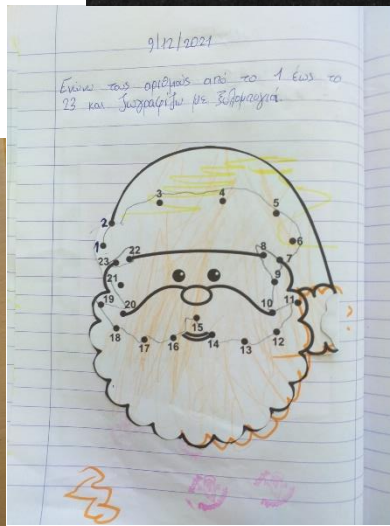 9/12/2021
Ενώνω τους αριθμούς από το 1 έως το
23 και ζωγραφίζω με ξυλομπογιά.
3
4
5
2
1
6
22
8
7
23
21
9
19
20
10
11
15
18
17
16
14
13
12